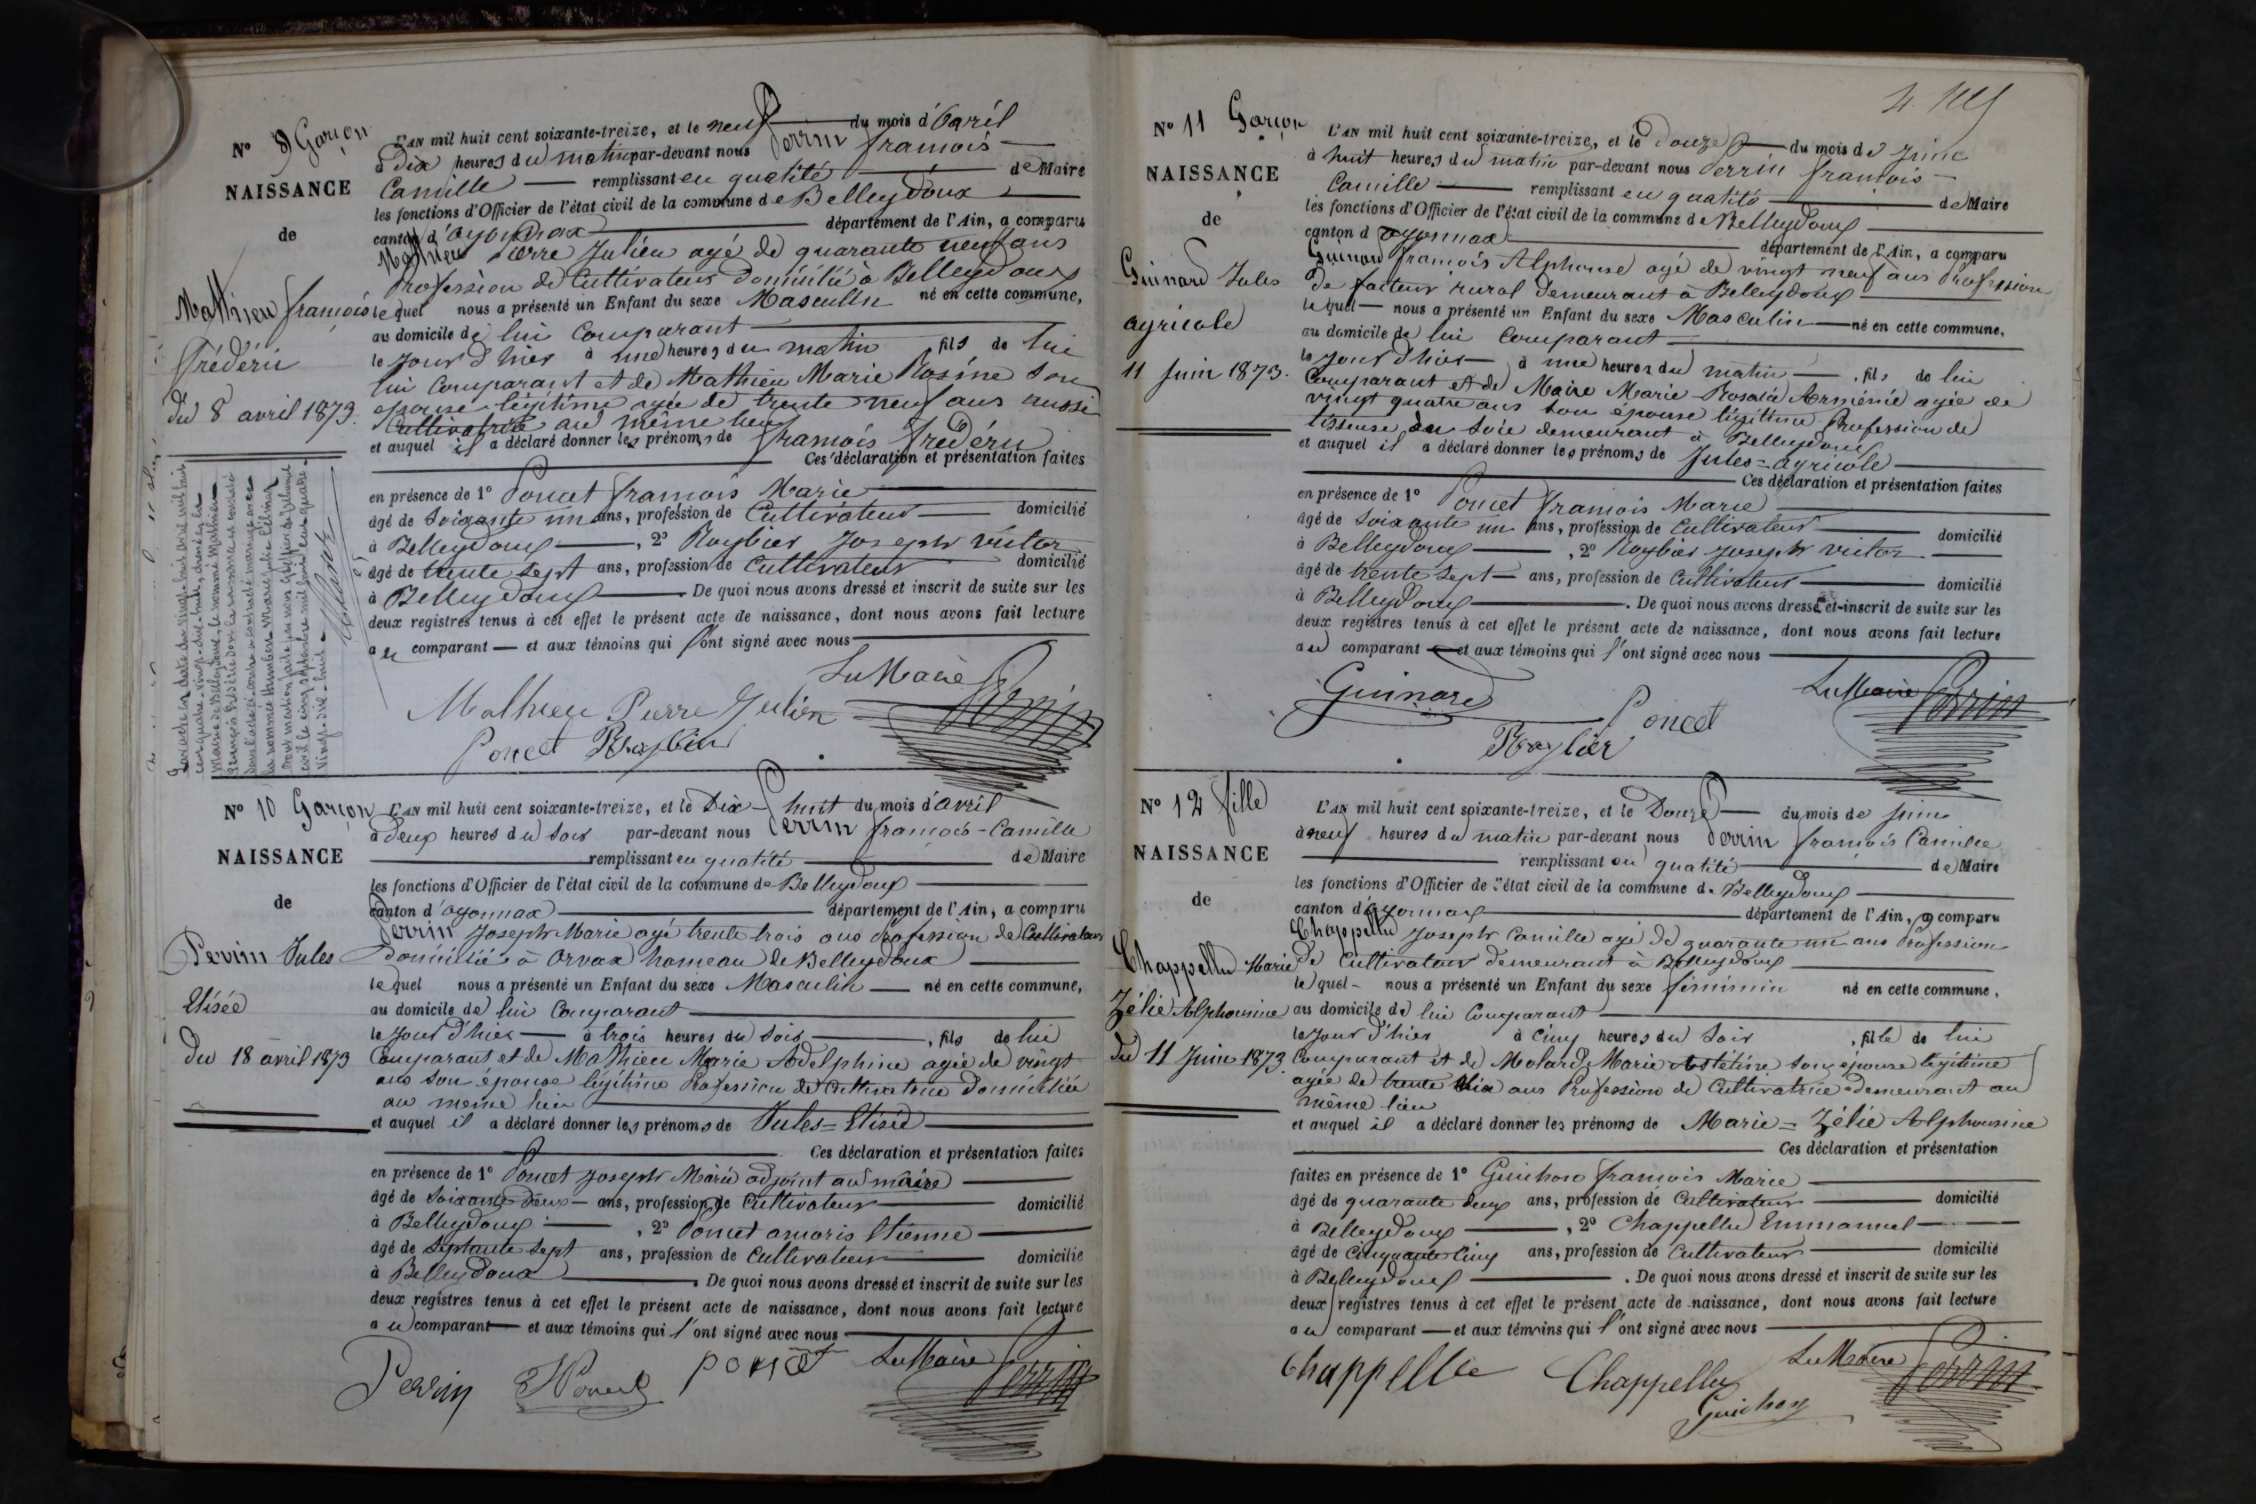 N° 9 Garçon
NAISSANCE
de
Mathieu françois
frédéric
du 8 avril 1873.
L'AN mil huit cent soixante-treize, et le neuf du mois d'avril
à dix heures du matin par-devant nous Perrin françois
Camille remplissant en qualité de Maire
les fonctions d'Officier de l'état civil de la commune de Belleydoux
canton d'oyonnax département de l'Ain, a comparu
Mathieu Pierre Julien agé de quarante neuf ans
Profession de Cultivateur domicilié à Belleydoux
lequel nous a présenté un Enfant du sexe Masculin né en cette commune,
au domicile de lui Comparant
le jour d'hier à une heures du matin fils de lui
lui Comparant et de Mathieu Marie Rosine son
epouse légitime agée de trente neuf ans aussi
Cultivatrice au même lieu
et auquel il a déclaré donner les prénoms de françois frédéric
Ces déclaration et présentation faites
en présence de 1° Poncet françois Marie
âgé de soixante un ans, profession de Cultivateur domicilié
à Belleydoux, 2° Roybier Joseph victor
âgé de trente sept ans, profession de Cultivateur domicilié
à Belleydoux. De quoi nous avons dressé et inscrit de suite sur les
deux registres tenus à cet effet le présent acte de naissance, dont nous avons fait lecture
au comparant et aux témoins qui l'ont signé avec nous
Le Maire
Mathieu Pierre Julien Perrin
Poncet Roybier
N° 10 Garçon
NAISSANCE
de
Perrin Jules
Elisée
du 18 avril 1873
L'AN mil huit cent soixante-treize, et le Dix huit du mois d'avril
à deux heures du soir par-devant nous Perrin françois-Camille
remplissant en qualité de Maire
les fonctions d'Officier de l'état civil de la commune de Belleydoux
canton d'oyonnax département de l'Ain, a comparu
Perrin Joseph Marie agé trente trois ans Profession de Cultivateur
Domicilié à Orvaz hameau de Belleydoux
lequel nous a présenté un Enfant du sexe Masculin né en cette commune,
au domicile de lui Comparant
le jour d'hier à trois heures du soir, fils de lui
Comparant et de Mathieu Marie Adelphine agée de vingt
ans son épouse légitime Profession de Cultivatrice Domiciliée
au meme lieu
et auquel il a déclaré donner les prénoms de Jules=Elisée
Ces déclaration et présentation faites
en présence de 1° Poncet Joseph Marie adjoint au maire
âgé de soixante deux ans, profession de Cultivateur domicilié
à Belleydoux, 2° Poncet Etienne
âgé de septante sept ans, profession de Cultivateur domicilié
à Belleydoux. De quoi nous avons dressé et inscrit de suite sur les
deux registres tenus à cet effet le présent acte de naissance, dont nous avons fait lecture
au comparant et aux témoins qui l'ont signé avec nous
Le Maire
Perrin Poncet Poncet Perrin
N° 11 Garçon
NAISSANCE
de
Guinard Jules
agricole
11 Juin 1873.
L'AN mil huit cent soixante-treize, et le douze du mois de Juin
à huit heures du matin par-devant nous Perrin françois
Camille remplissant en qualité de Maire
les fonctions d'Officier de l'état civil de la commune de Belleydoux
canton d oyonnax département de l'Ain, a comparu
Guinard françois Alphonse agé de vingt neuf ans Profession
de facteur rural demeurant à Belleydoux
lequel nous a présenté un Enfant du sexe Masculin né en cette commune,
au domicile de lui Comparant
le jour d'hier à une heures du matin, fils de lui
Comparant et de Maire Marie Rosalie Arménie agée de
vingt quatre ans son épouse légitime Profession de
tisseuse en soie demeurant à Belleydoux
et auquel il a déclaré donner les prénoms de Jules=agricole
Ces déclaration et présentation faites
en présence de 1° Poncet françois Marie
âgé de soixante un ans, profession de Cultivateur domicilié
à Belleydoux, 2° Roybier Joseph victor
âgé de trente sept ans, profession de Cultivateur domicilié
à Belleydoux. De quoi nous avons dressé et inscrit de suite sur les
deux registres tenus à cet effet le présent acte de naissance, dont nous avons fait lecture
au comparant et aux témoins qui l'ont signé avec nous
Le Maire
Guinard Poncet Perrin
Roybier
N° 12 fille
NAISSANCE
de
Chappellu Marie
Zélie Alphonsine
du 11 Juin 1873.
L'AN mil huit cent soixante-treize, et le Douze du mois de juin
à neuf heures du matin par-devant nous Perrin françois Camille
remplissant en qualité de Maire
les fonctions d'Officier de l'état civil de la commune de Belleydoux
canton d'oyonnax département de l'Ain, a comparu
Chappellu Joseph Camille agé de quarante un ans Profession
de Cultivateur demeurant à Belleydoux
lequel nous a présenté un Enfant du sexe féminin né en cette commune,
au domicile de lui Comparant
le jour d'hier à cinq heures du soir, fille de lui
Comparant et de Molard Marie son épouse légitime
agée de trente six ans Profession de Cultivatrice demeurant au
même lieu
et auquel il a déclaré donner les prénoms de Marie=Zélie Alphonsine
Ces déclaration et présentation
faites en présence de 1° Guichon françois Marie
âgé de quarante deux ans, profession de Cultivateur domicilié
à Belleydoux, 2° Chappellu Emmanuel
âgé de cinquante cinq ans, profession de Cultivateur domicilié
à Belleydoux. De quoi nous avons dressé et inscrit de suite sur les
deux registres tenus à cet effet le présent acte de naissance, dont nous avons fait lecture
au comparant et aux témoins qui l'ont signé avec nous
Le Maire
Chappellu Chappellu Perrin
Guichon